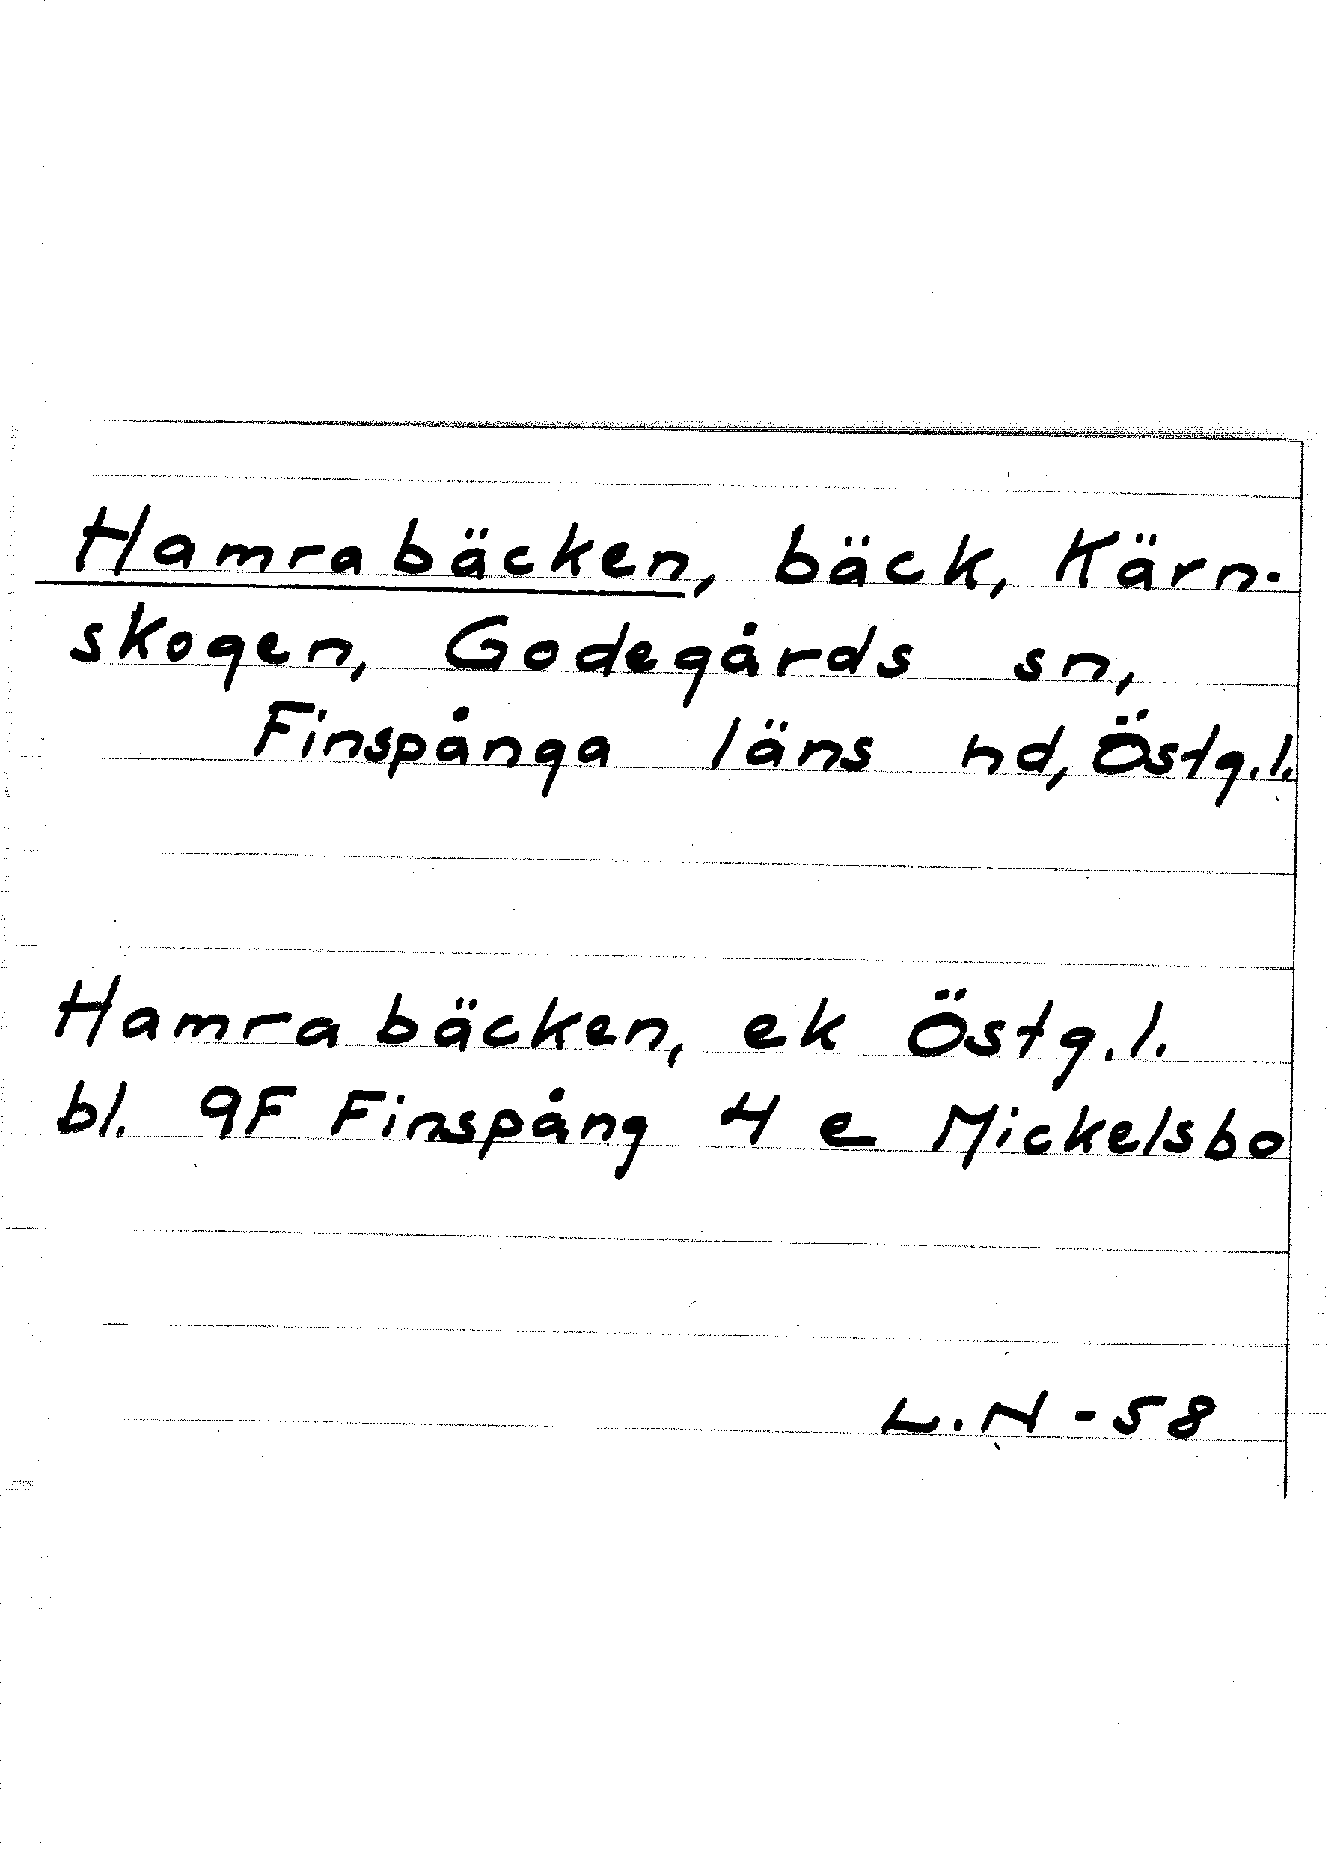 Hamrabäcken, bäck, Kärn-
skogen, Godegårds sn,
Finspånga läns hd, Östg.l.
Hamrabäcken, ek Östg.l.
bl. 9F Finspång 4 e Mickelsbo
L.N -58